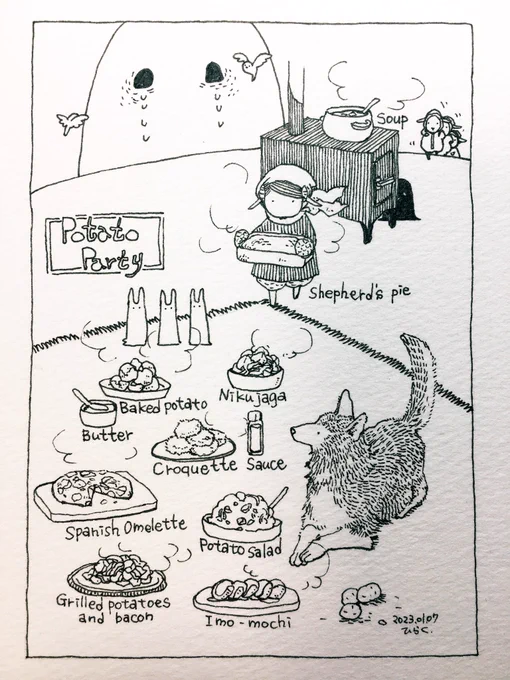 Soup
Potato
Party
Shepherd's pie
Baked potato
Nikujaga
Butter
Croquette
Sauce
Spanish Omelette
Potato salad
Grilled potatoes
and bacon
Imo-mochi
2023.01.07
ひらく.